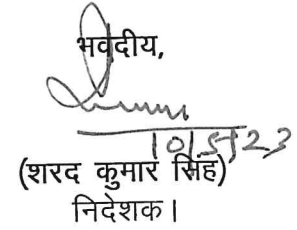 भवदीय,
10/5/23
(शरद कुमार सिंह)
निदेशक।